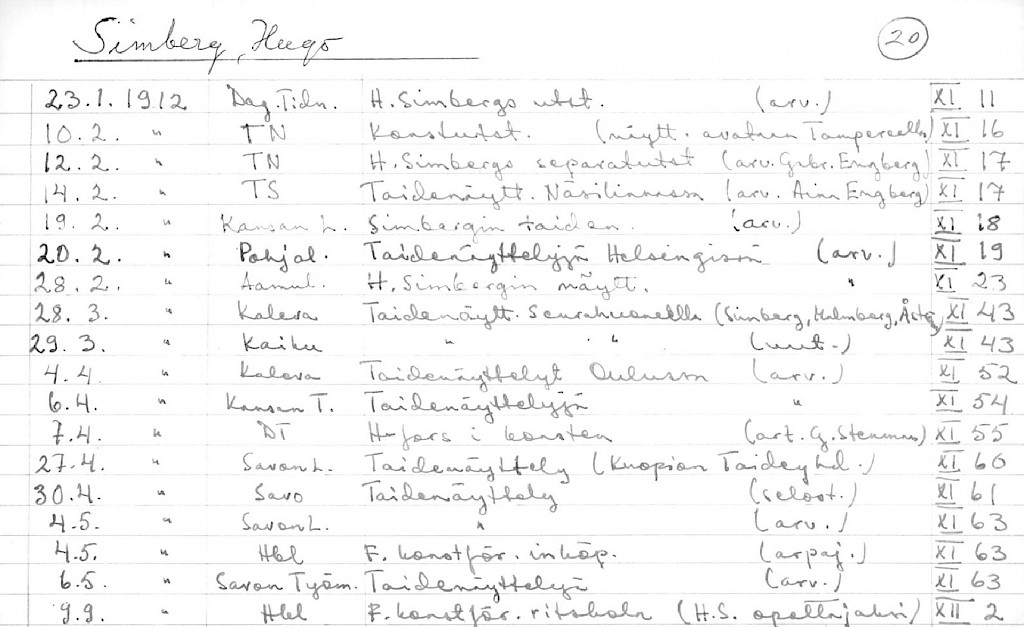 Simberg, Hugo 20
23.1. 1912 Dag.Tidn. H. Simbergs utst. (arv.) XI 11
10.2. " TN Konstutst. (näytt. avataan Tampereella) XI 16
12.2. " TN H. Simbergs separatutst (arv. Gebr. Engberg) XI 17
14.2. " TS Taidenäytt. Näsilinnassa (arv. Aina Engberg) XI 17
19.2. " Kansan L. Simbergin taiden. (arv.) XI 18
20.2. " Pohjal. Taidenäyttelyjä Helsingissä (arv.) XI 19
28.2. " Aamul. H. Simbergin näytt. " XI 23
28.3. " Kaleva Taidenäytt. Seurahuoneella (Simberg, Malmberg, XI 43
29.3. " Kaiku " " (uut.) XI 43
4.4. " Kaleva Taidenäyttelyt Oulussa (arv.) XI 52
6.4. " Kansan T. Taidenäyttelyjä " XI 54
7.4. " DT H-fors i konsten (art. G. Stenman) XI 55
27.4. " Savon L. Taidenäyttely (Kuopion Taideyhd.) XI 60
30.4. " Savo Taidenäyttely (selost.) XI 61
4.5. " Savon L. " (arv.) XI 63
4.5. " Hbl F. konstför. inköp. (arpaj.) XI 63
6.5. " Savon Työm. Taidenäyttelyjä (arv.) XI 63
9.9. " Hbl F. konstför. ritskola (H.S. opettajaksi) XII 2